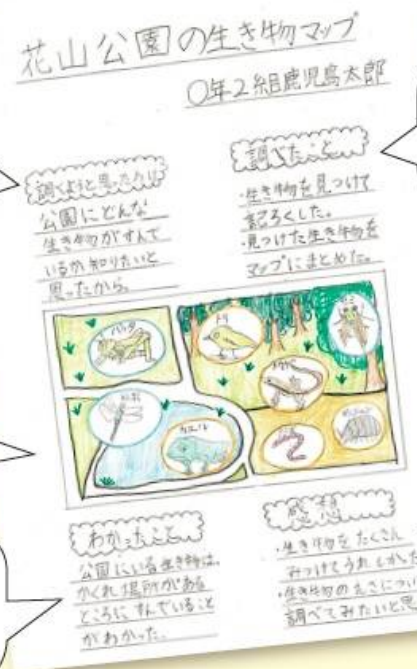 花山公園の生き物マップ
○年2組鹿児島太郎
調べようと思ったわけ
公園にどんな
生き物がすんで
いるか知りたいと
思ったから。
調べたこと
・生き物を見つけて
記ろくした。
・見つけた生き物を
マップにまとめた。
バッタ
トリ
セミ
トンボ
カエル
わかったこと
公園にいる生き物は、
かくれ場所がある
ところにすんでいること
がわかった。
感想
・生き物をたくさん
みつけてうれしかった
・生き物のえさについ
調べてみたいと思